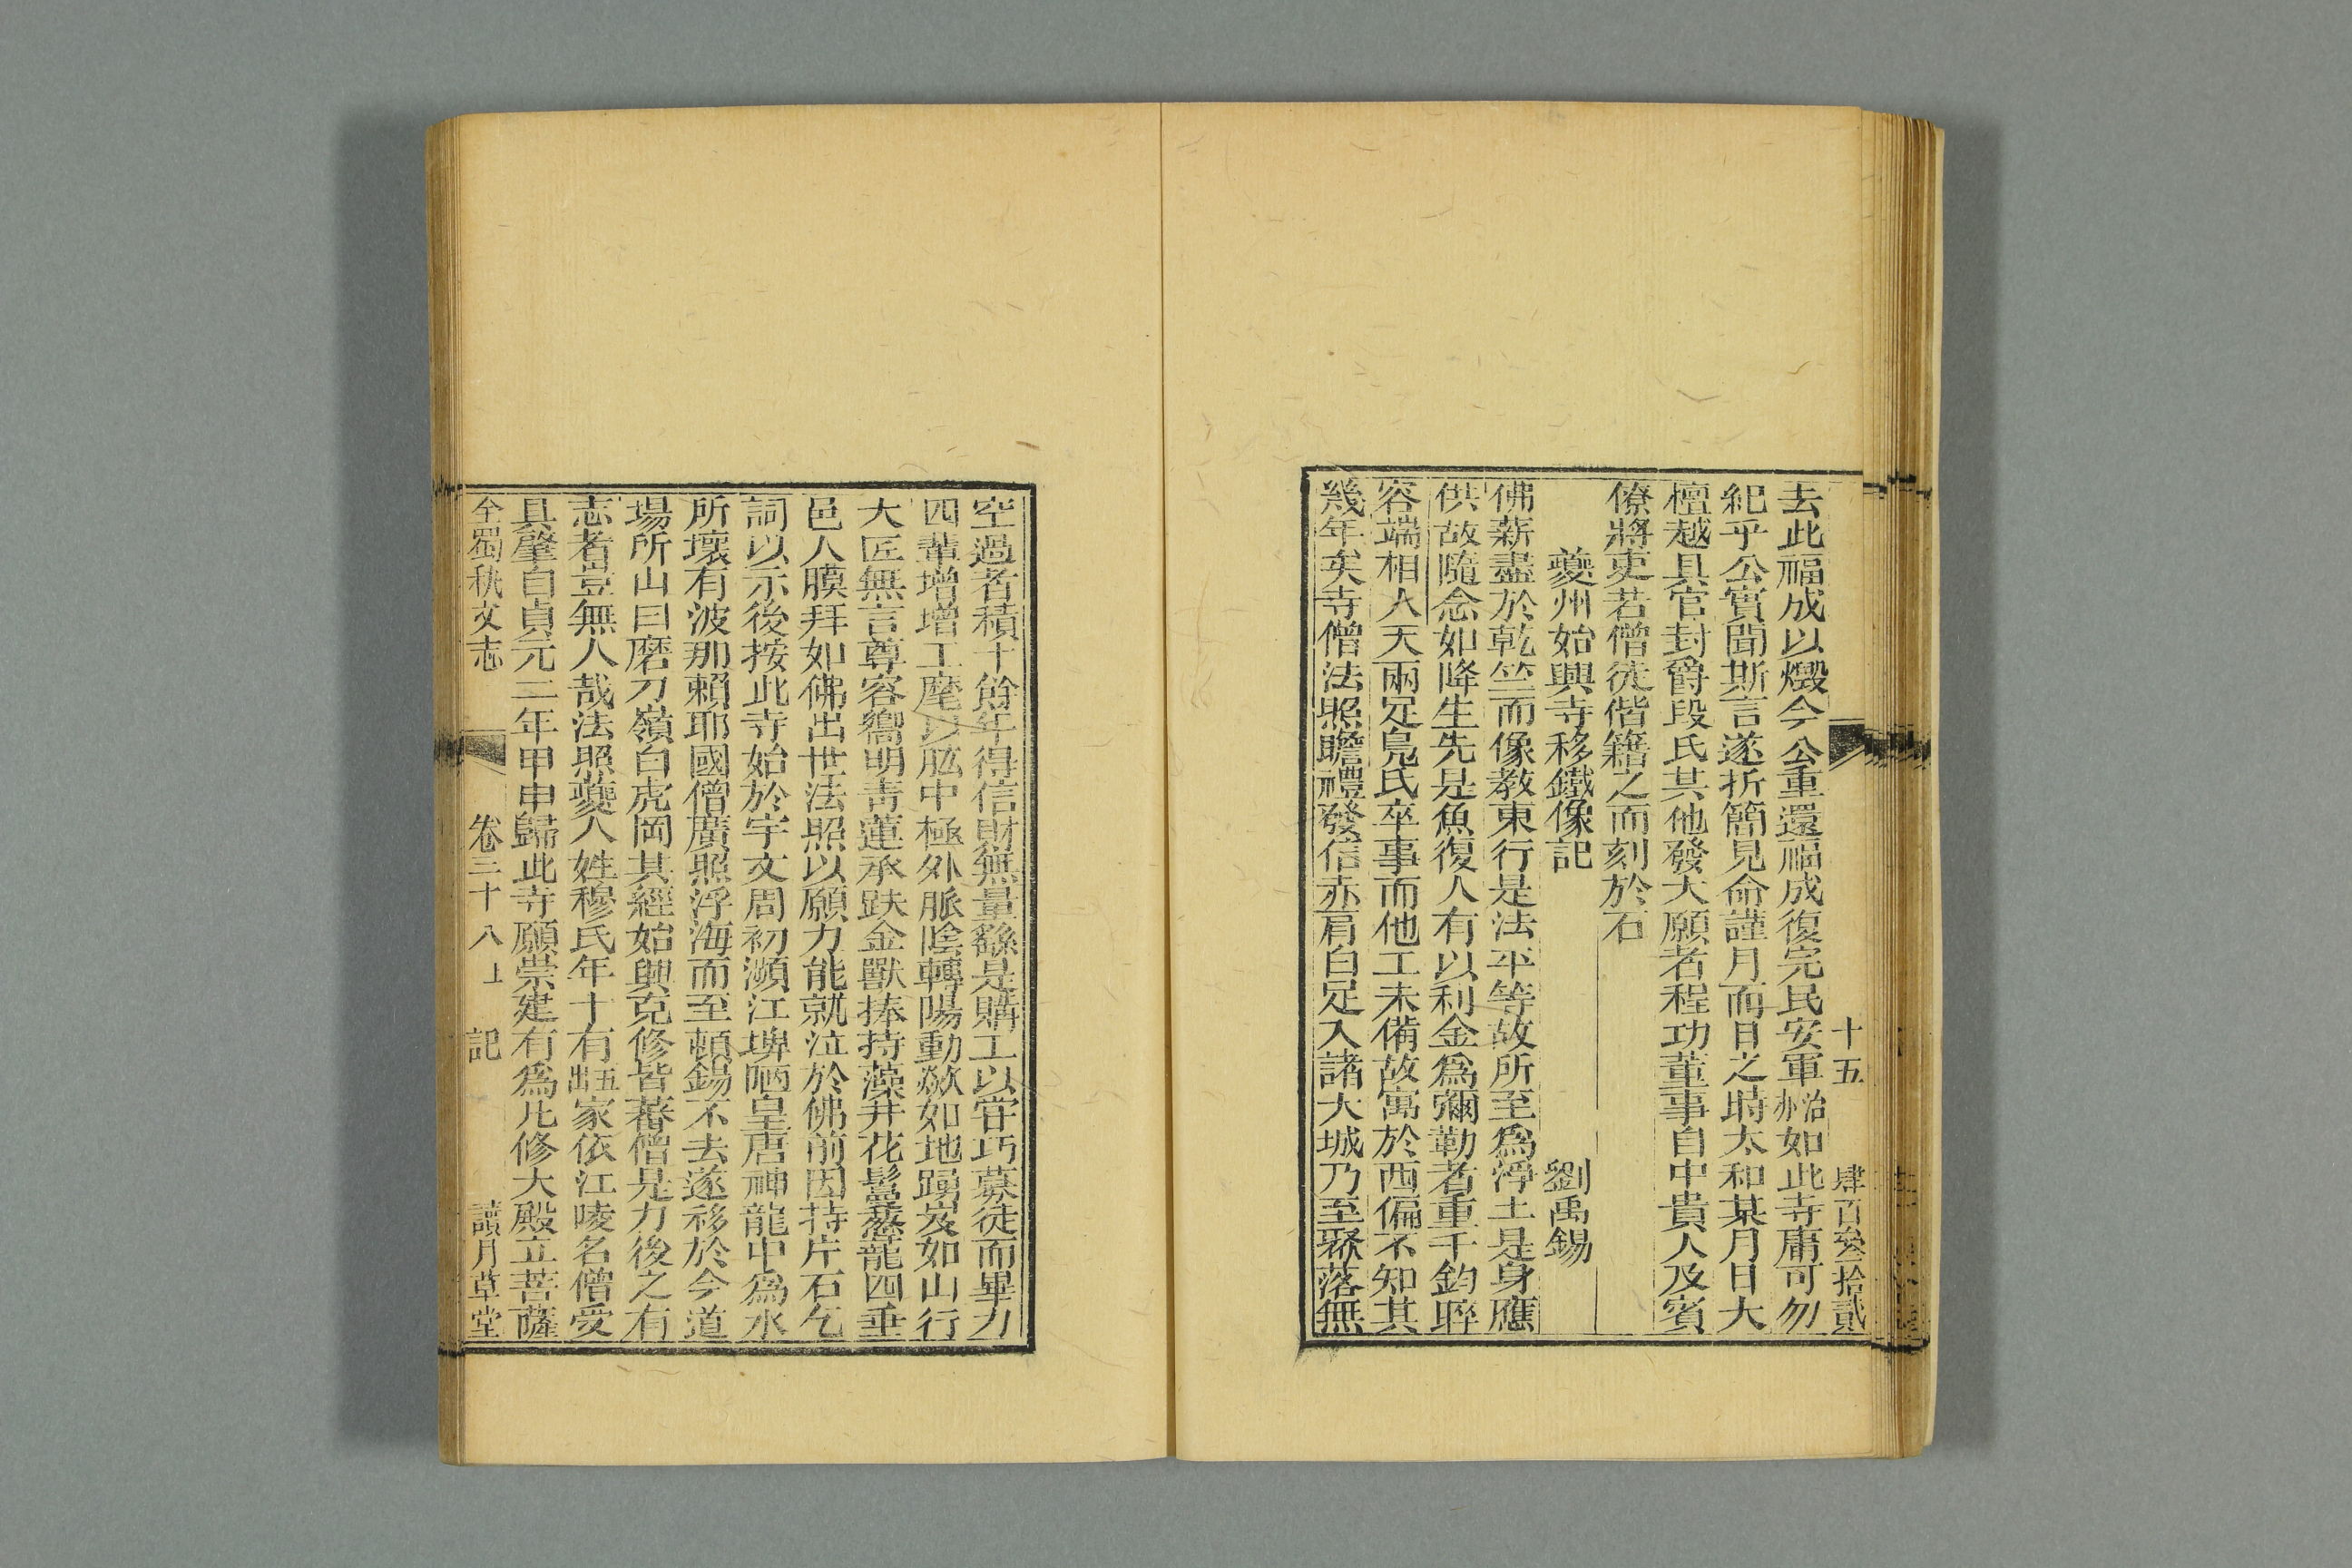 十五　肆百叁拾貳
去此福成以燬今公重還福成復完民安軍治亦如此寺庸可勿
紀乎公實聞斯言遂折簡見命謹月而日之時太和某月日大
檀越具官封爵段氏其他發大願者程功董事自中貴人及賓
僚將吏若僧徒偕籍之而刻於石
夔州始興寺移鐵像記　劉禹錫
佛薪盡於乾竺而像教東行是法平等故所至為淨土是身應
供故隨念如降生先是魚復人有以利金為彌勒者重千鈞睟
容端相人天兩足鳧氏卒事而他工未備故寓於西偏不知其
幾年矣寺僧法照瞻禮發信赤肩白足入諸大城乃至聚落無
空過者積十餘年得信財無量繇是購工以甞巧募徒而畢力
四輩增增工麾以肱中極外脈陰轉陽動欻如地踴岌如山行
大匠無言尊容嚮明青蓮承趺金獸捧持藻井花鬘葢龍四垂
邑人膜拜如佛出世法照以願力能就泣於佛前因持片石乞
詞以示後按此寺始於宇文周初瀕江埤陋皇唐神龍中為水
所壞有波那賴耶國僧廣照浮海而至頓錫不去遂移於今道
場所山曰磨刀嶺白虎岡其經始興克修皆蕃僧是力後之有
志者豈無人哉法照夔人姓穆氏年十有五出家依江陵名僧受
具肇自貞元二年甲申歸此寺願崇建有為凡修大殿立菩薩
全蜀秇文志　卷三十八上　記　讀月草堂